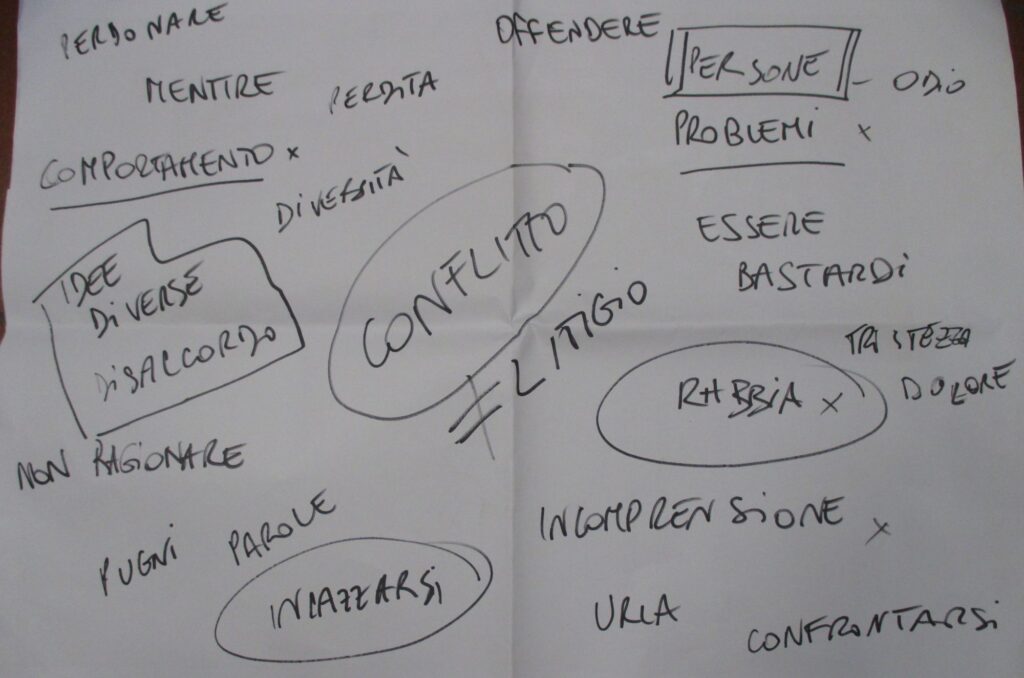 PERDONARE
MENTIRE
PERDITA
COMPORTAMENTO x
DIVERSITÀ
IDEE
DIVERSE
DISACCORDO
NON RAGIONARE
PUGNI PAROLE
INCAZZARSI
CONFLITTO
≠ LITIGIO
OFFENDERE
PERSONE - ODIO
PROBLEMI x
ESSERE
BASTARDI
TRISTEZZA
RABBIA x
DOLORE
INCOMPRENSIONE x
URLA
CONFRONTARSI